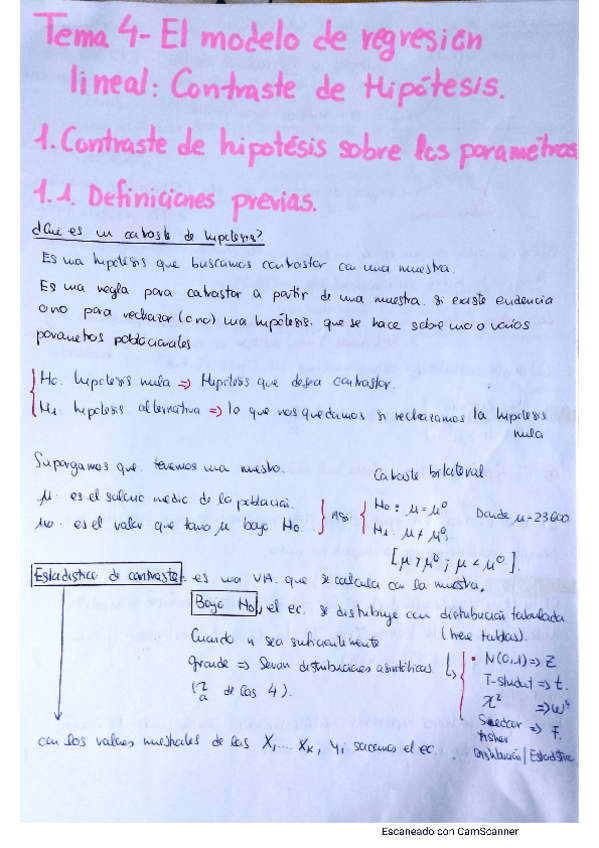 Tema 4- El modelo de regresión
lineal: Contraste de Hipótesis.
1. Contraste de hipotésis sobre los parametros
1.1. Definiciones previas.
¿Que es un contraste de hipotesis?
Es una hipotesis que buscamos contrastar con una muestra.
Es una regla para contrastar a partir de una muestra, si existe evidencia
o no para rechazar (o no) una hipótesis, que se hace sobre uno o varios
parametros poblacionales
H0. hipotesis nula => Hipotesis que desea contrastar.
H1. hipotesis alternativa => lo que nos quedamos si rechazamos la hipotesis
nula
Supongamos que tenemos una muestra.
Contraste bilateral
μ. es el salario medio de la población.
μ0. es el valor que toma μ bajo H0.
Así
H0: μ = μ⁰
H1: μ ≠ μ⁰,
Donde μ = 23600
[μ > μ⁰ ; μ < μ⁰].
Estadistico de contraste. es una VA. que se calcula con la muestra.
Bajo H0, el ec. se distribuye con distribución tabulada
(tiene tablas).
Cuando n sea suficientemente
grande => Sevan distribuciones asintóticas.
de las 4).
N(0,1) => Z
T-student => t.
χ² =>
Snedecor
fisher => F.
Distribución / Estadistico
con los valores muestrales de las X1,... XK, Yi sacamos el ec.
Escaneado con CamScanner